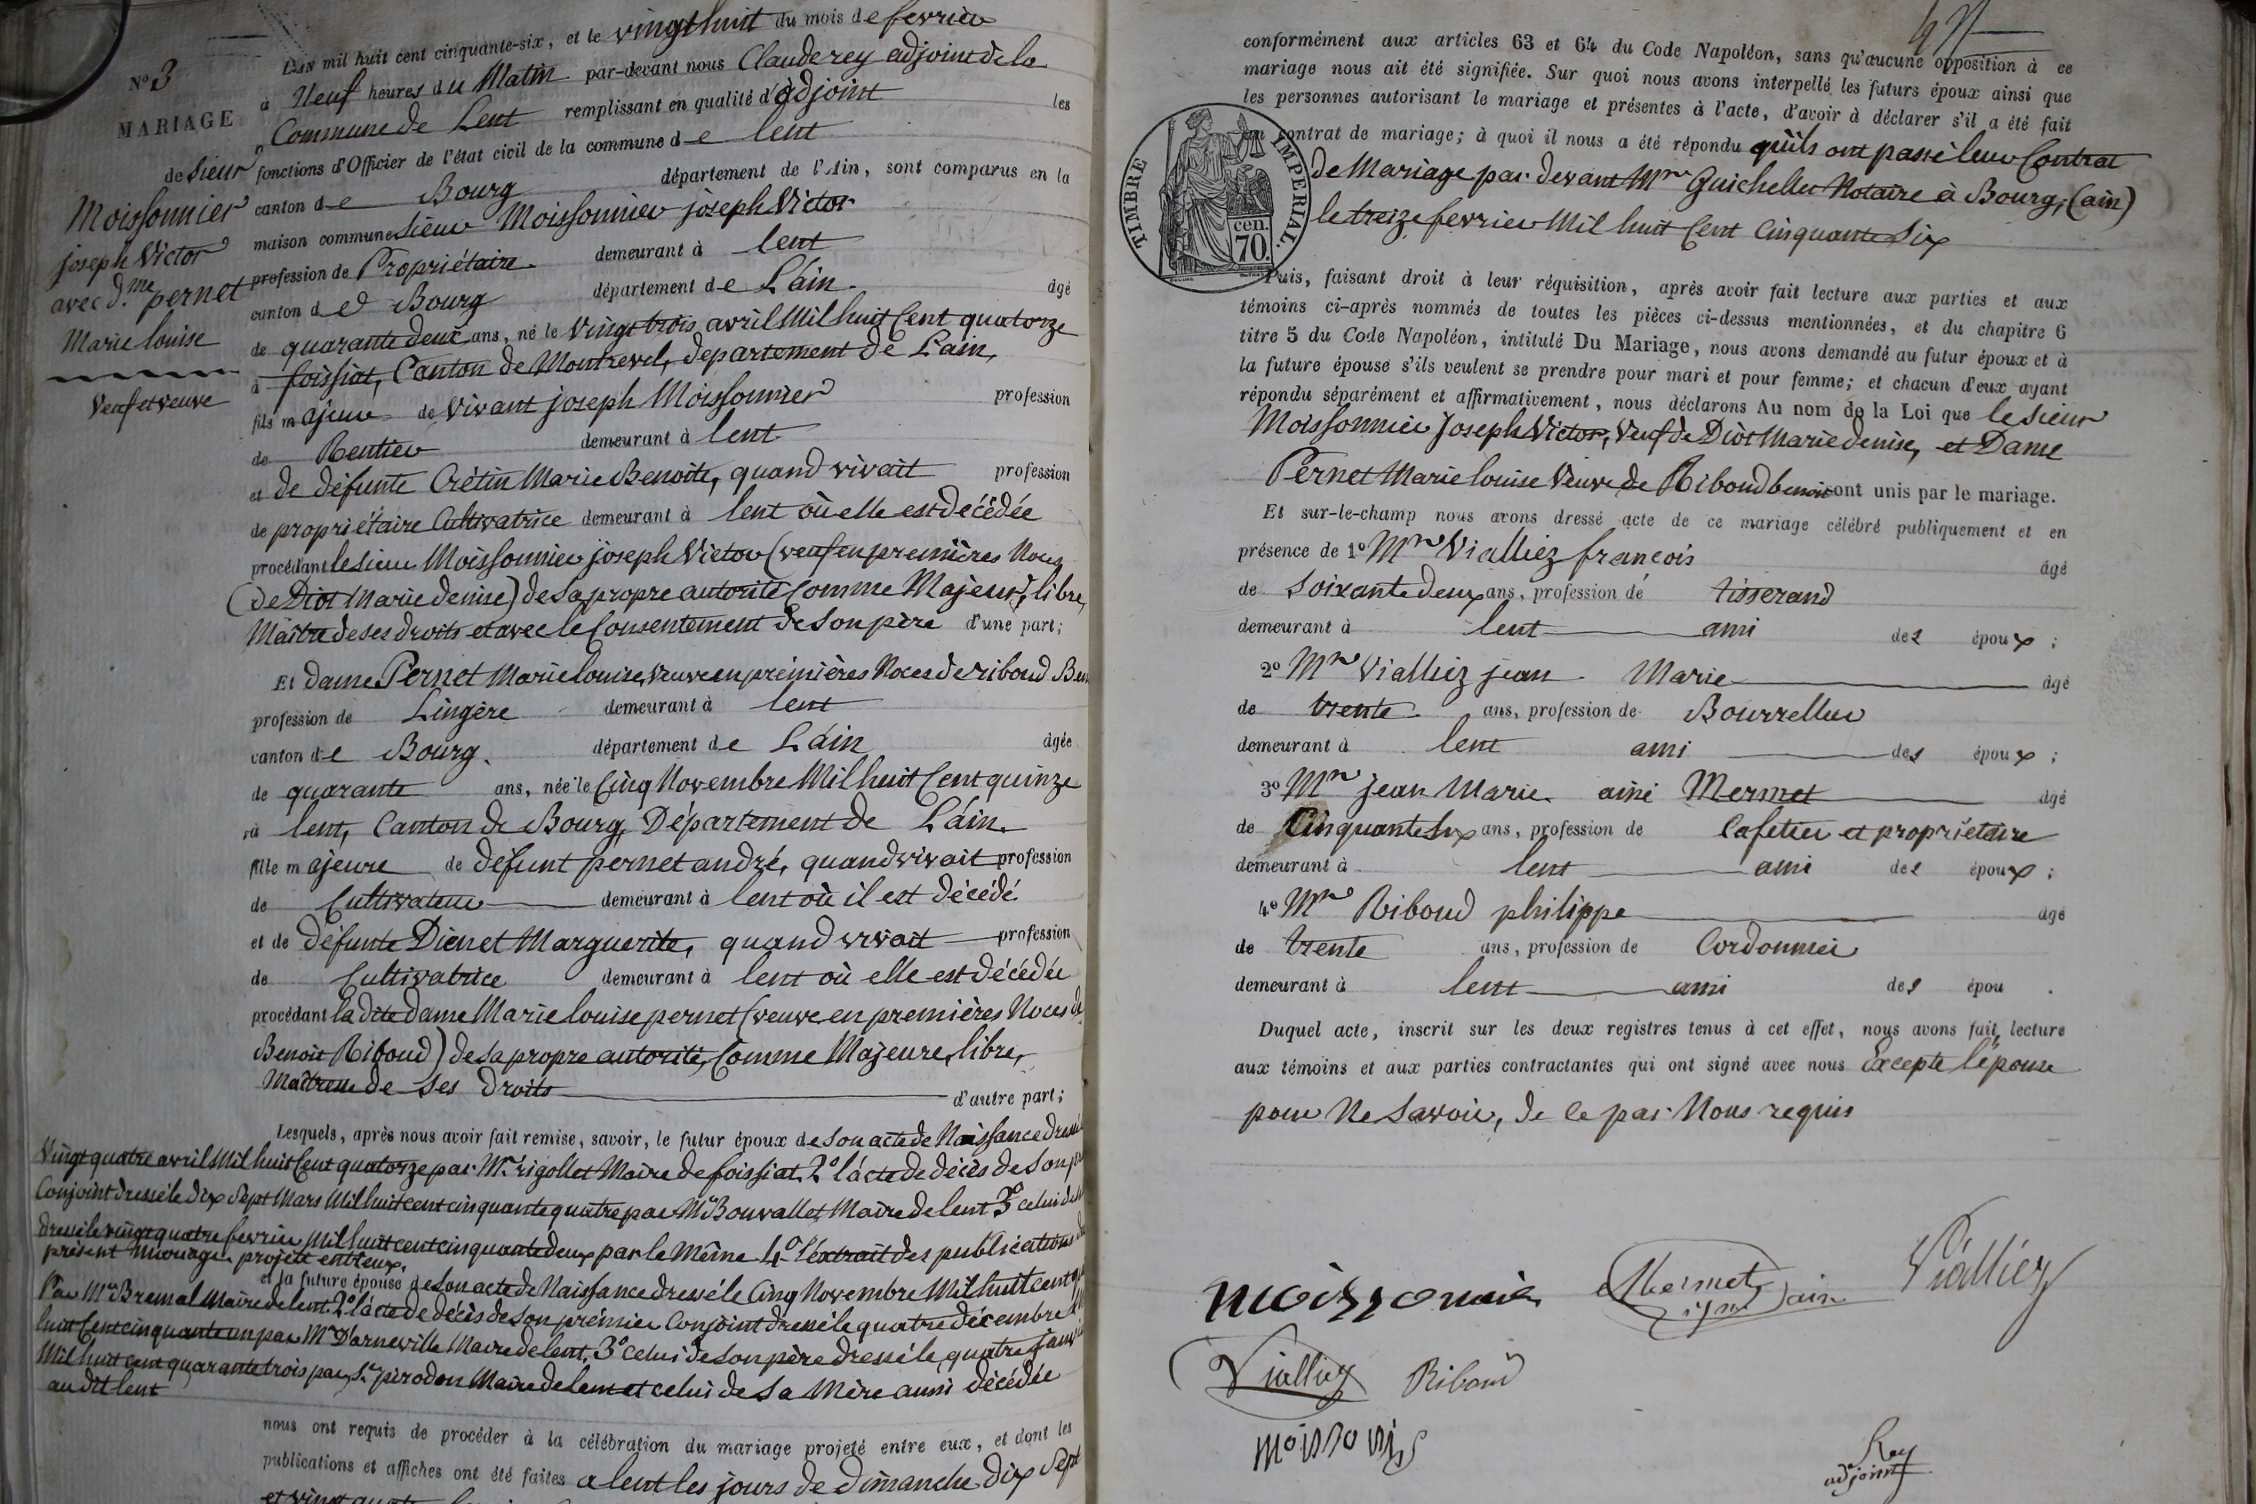 L'an mil huit cent cinquante-six, et le vingt huit du mois de fevrier
à Neuf heures du Matin par-devant nous Claude rey adjoint de la
Commune de Lent remplissant en qualité d'adjoint les
fonctions d'Officier de l'état civil de la commune de lent
canton de Bourg département de l'Ain, sont comparus en la
maison commune sieur Moissonnier joseph Victor
profession de Propriétaire demeurant à lent
canton de Bourg département de L'ain. âgé
de quarante deux ans, né le Vingt trois avril Mil huit Cent quatorze
à foissiat, Canton de Montrevel, departement de L'ain,
fils majeur de Vivant joseph Moissonnier profession
de Rentier demeurant à lent
et de défunte Crétin Marie Benoite, quand vivait profession
de propriétaire Cultivatrice demeurant à lent où elle est décédée
procédant le sieur Moissonnier joseph Victor (veuf en premières Noces
(de Diot Marie denise) de sa propre autorité Comme Majeur, libre,
Maître de ses droits et avec le Consentement de son père d'une part;
Et dame Pernet Marie louise, veuve en premières Noces de riboud
profession de Lingère demeurant à lent
canton de Bourg. département de L'ain âgée
de quarante ans, née le Cinq Novembre Mil huit Cent quinze
à lent, Canton de Bourg, Département de L'ain.
fille majeure de défunt pernet andré, quand vivait profession
de Cultivateur demeurant à lent où il est décédé
et de défunte Dienet Marguerite, quand vivait profession
de Cultivatrice demeurant à lent où elle est décédée
procédant la dite dame Marie louise pernet (veuve en premières Noces de
Benoit Riboud) de sa propre autorité, Comme Majeure, libre,
Maîtresse de ses droits d'autre part;
Lesquels, après nous avoir fait remise, savoir, le futur époux de son acte de Naissance dressé
Vingt quatre avril Mil huit Cent quatorze par Mr rigollet Maire de foissiat 2º l'acte de décès de son
Conjoint dressé le dix sept Mars Mil huit cent cinquante quatre par Mr Bouvallet Maire de lent 3º celui de
dressé le vingt quatre fevrier Mil huit cent cinquante deux par le Même 4º l'extrait des publications du
présent mariage projeté entreux.
et la future épouse de son acte de Naissance dressé le Cinq Novembre Mil huit cent
Par Mr Bremal Maire de lent 2º l'acte de décès de son prémier Conjoint dressé le quatre décembre
huit Cent cinquante un par Mr D'arneville Maire de lent, 3º celui de son père dressé le quatre
Mil huit cent quarante trois par Sr pirodon Maire de lent et celui de sa Mère aussi décédée
au dit lent
nous ont requis de procéder à la célébration du mariage projeté entre eux, et dont les
publications et affiches ont été faites a lent les jours de dimanche dix sept
Nº 3
MARIAGE
de Sieur
Moissonnier
joseph Victor
avec d.me pernet
Marie louise
Veuf et veuve
conformément aux articles 63 et 64 du Code Napoléon, sans qu'aucune opposition à ce
mariage nous ait été signifiée. Sur quoi nous avons interpellé les futurs époux ainsi que
les personnes autorisant le mariage et présentes à l'acte, d'avoir à déclarer s'il a été fait
un contrat de mariage; à quoi il nous a été répondu qu'ils ont passé leur Contrat
de Mariage par devant Mre Guichellet Notaire à Bourg, (ain)
le treize fevrier Mil huit Cent Cinquante Six
TIMBRE IMPERIAL.
70
cen.
Puis, faisant droit à leur réquisition, après avoir fait lecture aux parties et aux
témoins ci-après nommés de toutes les pièces ci-dessus mentionnées, et du chapitre 6
titre 5 du Code Napoléon, intitulé Du Mariage, nous avons demandé au futur époux et à
la future épouse s'ils veulent se prendre pour mari et pour femme; et chacun d'eux ayant
répondu séparément et affirmativement, nous déclarons Au nom de la Loi que le sieur
Moissonnier Joseph Victor, veuf de Diot Marie denise, et Dame
Pernet Marie louise Veuve de Riboud benoit sont unis par le mariage.
Et sur-le-champ nous avons dressé acte de ce mariage célébré publiquement et en
présence de 1º Mr Vialliez francois âgé
de Soixante deux ans, profession de tisserand
demeurant à lent ami des époux;
2º Mr Vialliez jean Marie âgé
de trente ans, profession de Bourrellier
demeurant à lent ami des époux;
3º Mr jean Marie ainé Mermet âgé
de Cinquante Six ans, profession de Cafetier et propriétaire
demeurant à lent ami des époux;
4º Mr Riboud philippe âgé
de trente ans, profession de Cordonnier
demeurant à lent ami des épou .
Duquel acte, inscrit sur les deux registres tenus à cet effet, nous avons fait lecture
aux témoins et aux parties contractantes qui ont signé avec nous Excepte l'épouse
pour Ne savoir, de ce par Nous requis
moissonnier Mermet ainé Viallier
Vialliez Riboud
Rey
adjoint